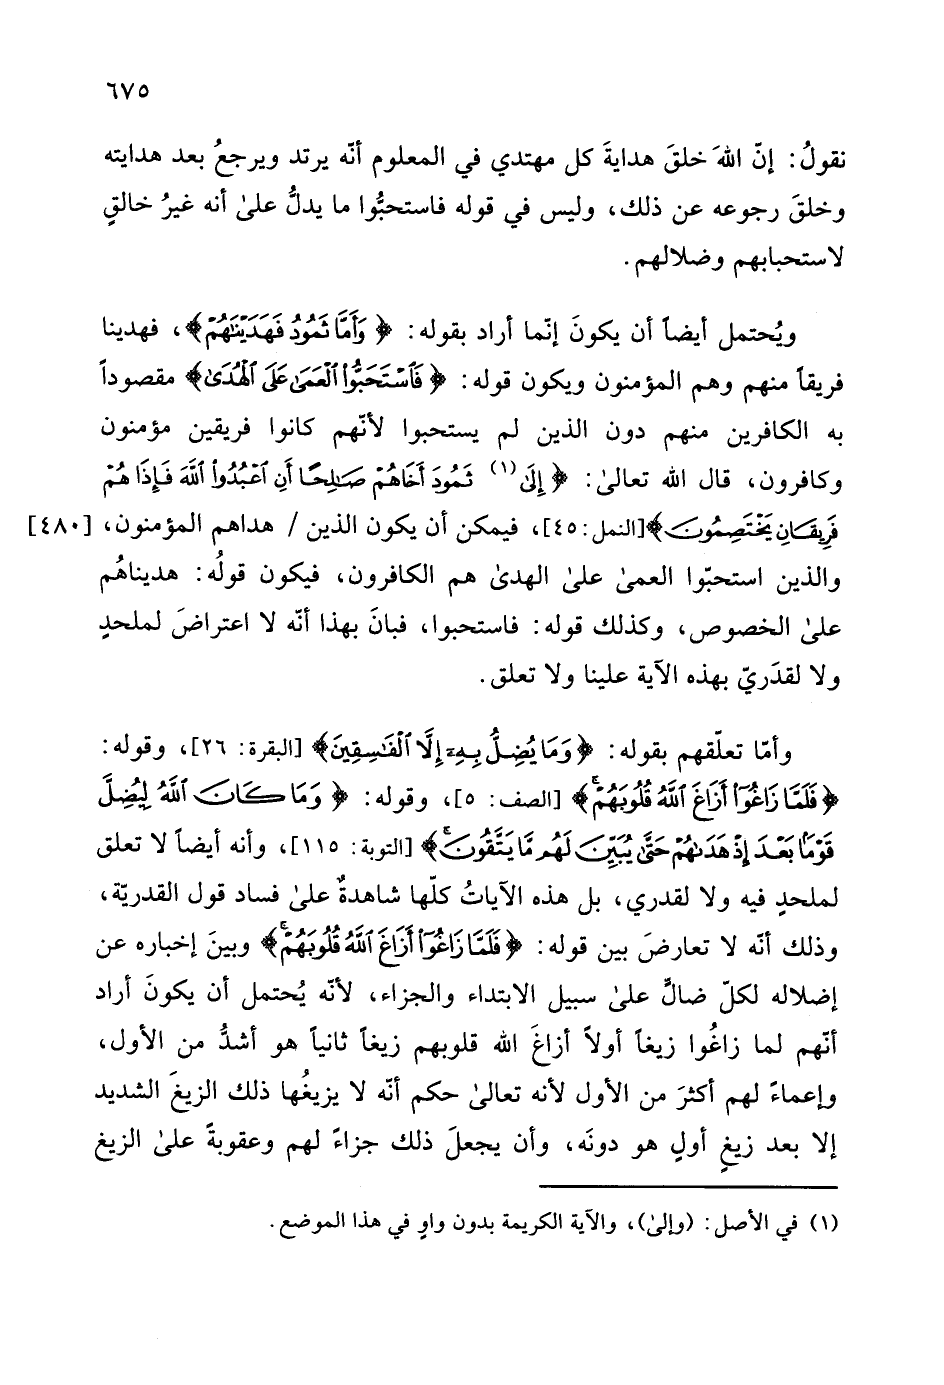 ٦٧٥
نقولُ: إنّ اللهَ خلقَ هدايةَ كل مهتدي في المعلوم أنّه يرتد ويرجعُ بعد هدايته
وخلقَ رجوعه عن ذلك، وليس في قوله فاستحبُّوا ما يدلُّ علىٰ أنه غيرُ خالقٍ
لاستحبابهم وضلالهم.
ويُحتمل أيضاً أن يكونَ إنّما أراد بقوله: ﴿وَأَمَّا ثَمُودُ فَهَدَيْنَٰهُمْ﴾، فهدينا
فريقاً منهم وهم المؤمنون ويكون قوله: ﴿فَٱسْتَحَبُّوا۟ ٱلْعَمَىٰ عَلَى ٱلْهُدَىٰ﴾ مقصوداً
به الكافرين منهم دون الذين لم يستحبوا لأنّهم كانوا فريقين مؤمنون
وكافرون، قال الله تعالىٰ: ﴿إِلَىٰ (١) ثَمُودَ أَخَاهُمْ صَٰلِحًا أَنِ ٱعْبُدُوا۟ ٱللَّهَ فَإِذَا هُمْ
فَرِيقَانِ يَخْتَصِمُونَ﴾[النمل:٤٥]، فيمكن أن يكون الذين / هداهم المؤمنون، [٤٨٠]
والذين استحبّوا العمىٰ علىٰ الهدىٰ هم الكافرون، فيكون قولُه: هديناهُم
علىٰ الخصوص، وكذلك قوله: فاستحبوا، فبانَ بهذا أنّه لا اعتراضَ لملحدٍ
ولا لقدَريّ بهذه الآية علينا ولا تعلق.
وأمّا تعلّقهم بقوله: ﴿وَمَا يُضِلُّ بِهِۦٓ إِلَّا ٱلْفَٰسِقِينَ﴾ [البقرة: ٢٦]، وقوله:
﴿فَلَمَّا زَاغُوٓا۟ أَزَاغَ ٱللَّهُ قُلُوبَهُمْ﴾ [الصف: ٥]، وقوله: ﴿وَمَا كَانَ ٱللَّهُ لِيُضِلَّ
قَوْمًۢا بَعْدَ إِذْ هَدَىٰهُمْ حَتَّىٰ يُبَيِّنَ لَهُم مَّا يَتَّقُونَ﴾ [التوبة: ١١٥]، وأنه أيضاً لا تعلق
لملحدٍ فيه ولا لقدري، بل هذه الآياتُ كلّها شاهدةٌ علىٰ فساد قول القدريّة،
وذلك أنّه لا تعارضَ بين قوله: ﴿فَلَمَّا زَاغُوٓا۟ أَزَاغَ ٱللَّهُ قُلُوبَهُمْ﴾ وبينَ إخباره عن
إضلاله لكلّ ضالٍّ علىٰ سبيل الابتداء والجزاء، لأنّه يُحتمل أن يكونَ أراد
أنّهم لما زاغُوا زيغاً أولاً أزاغَ الله قلوبهم زيغاً ثانياً هو أشدُّ من الأول،
وإعماءً لهم أكثرَ من الأول لأنه تعالىٰ حكم أنّه لا يزيغُها ذلك الزيغَ الشديد
إلا بعد زيغٍ أولٍ هو دونَه، وأن يجعلَ ذلك جزاءً لهم وعقوبةً علىٰ الزيغ
(١) في الأصل: (وإلىٰ)، والآية الكريمة بدون واوٍ في هذا الموضع.